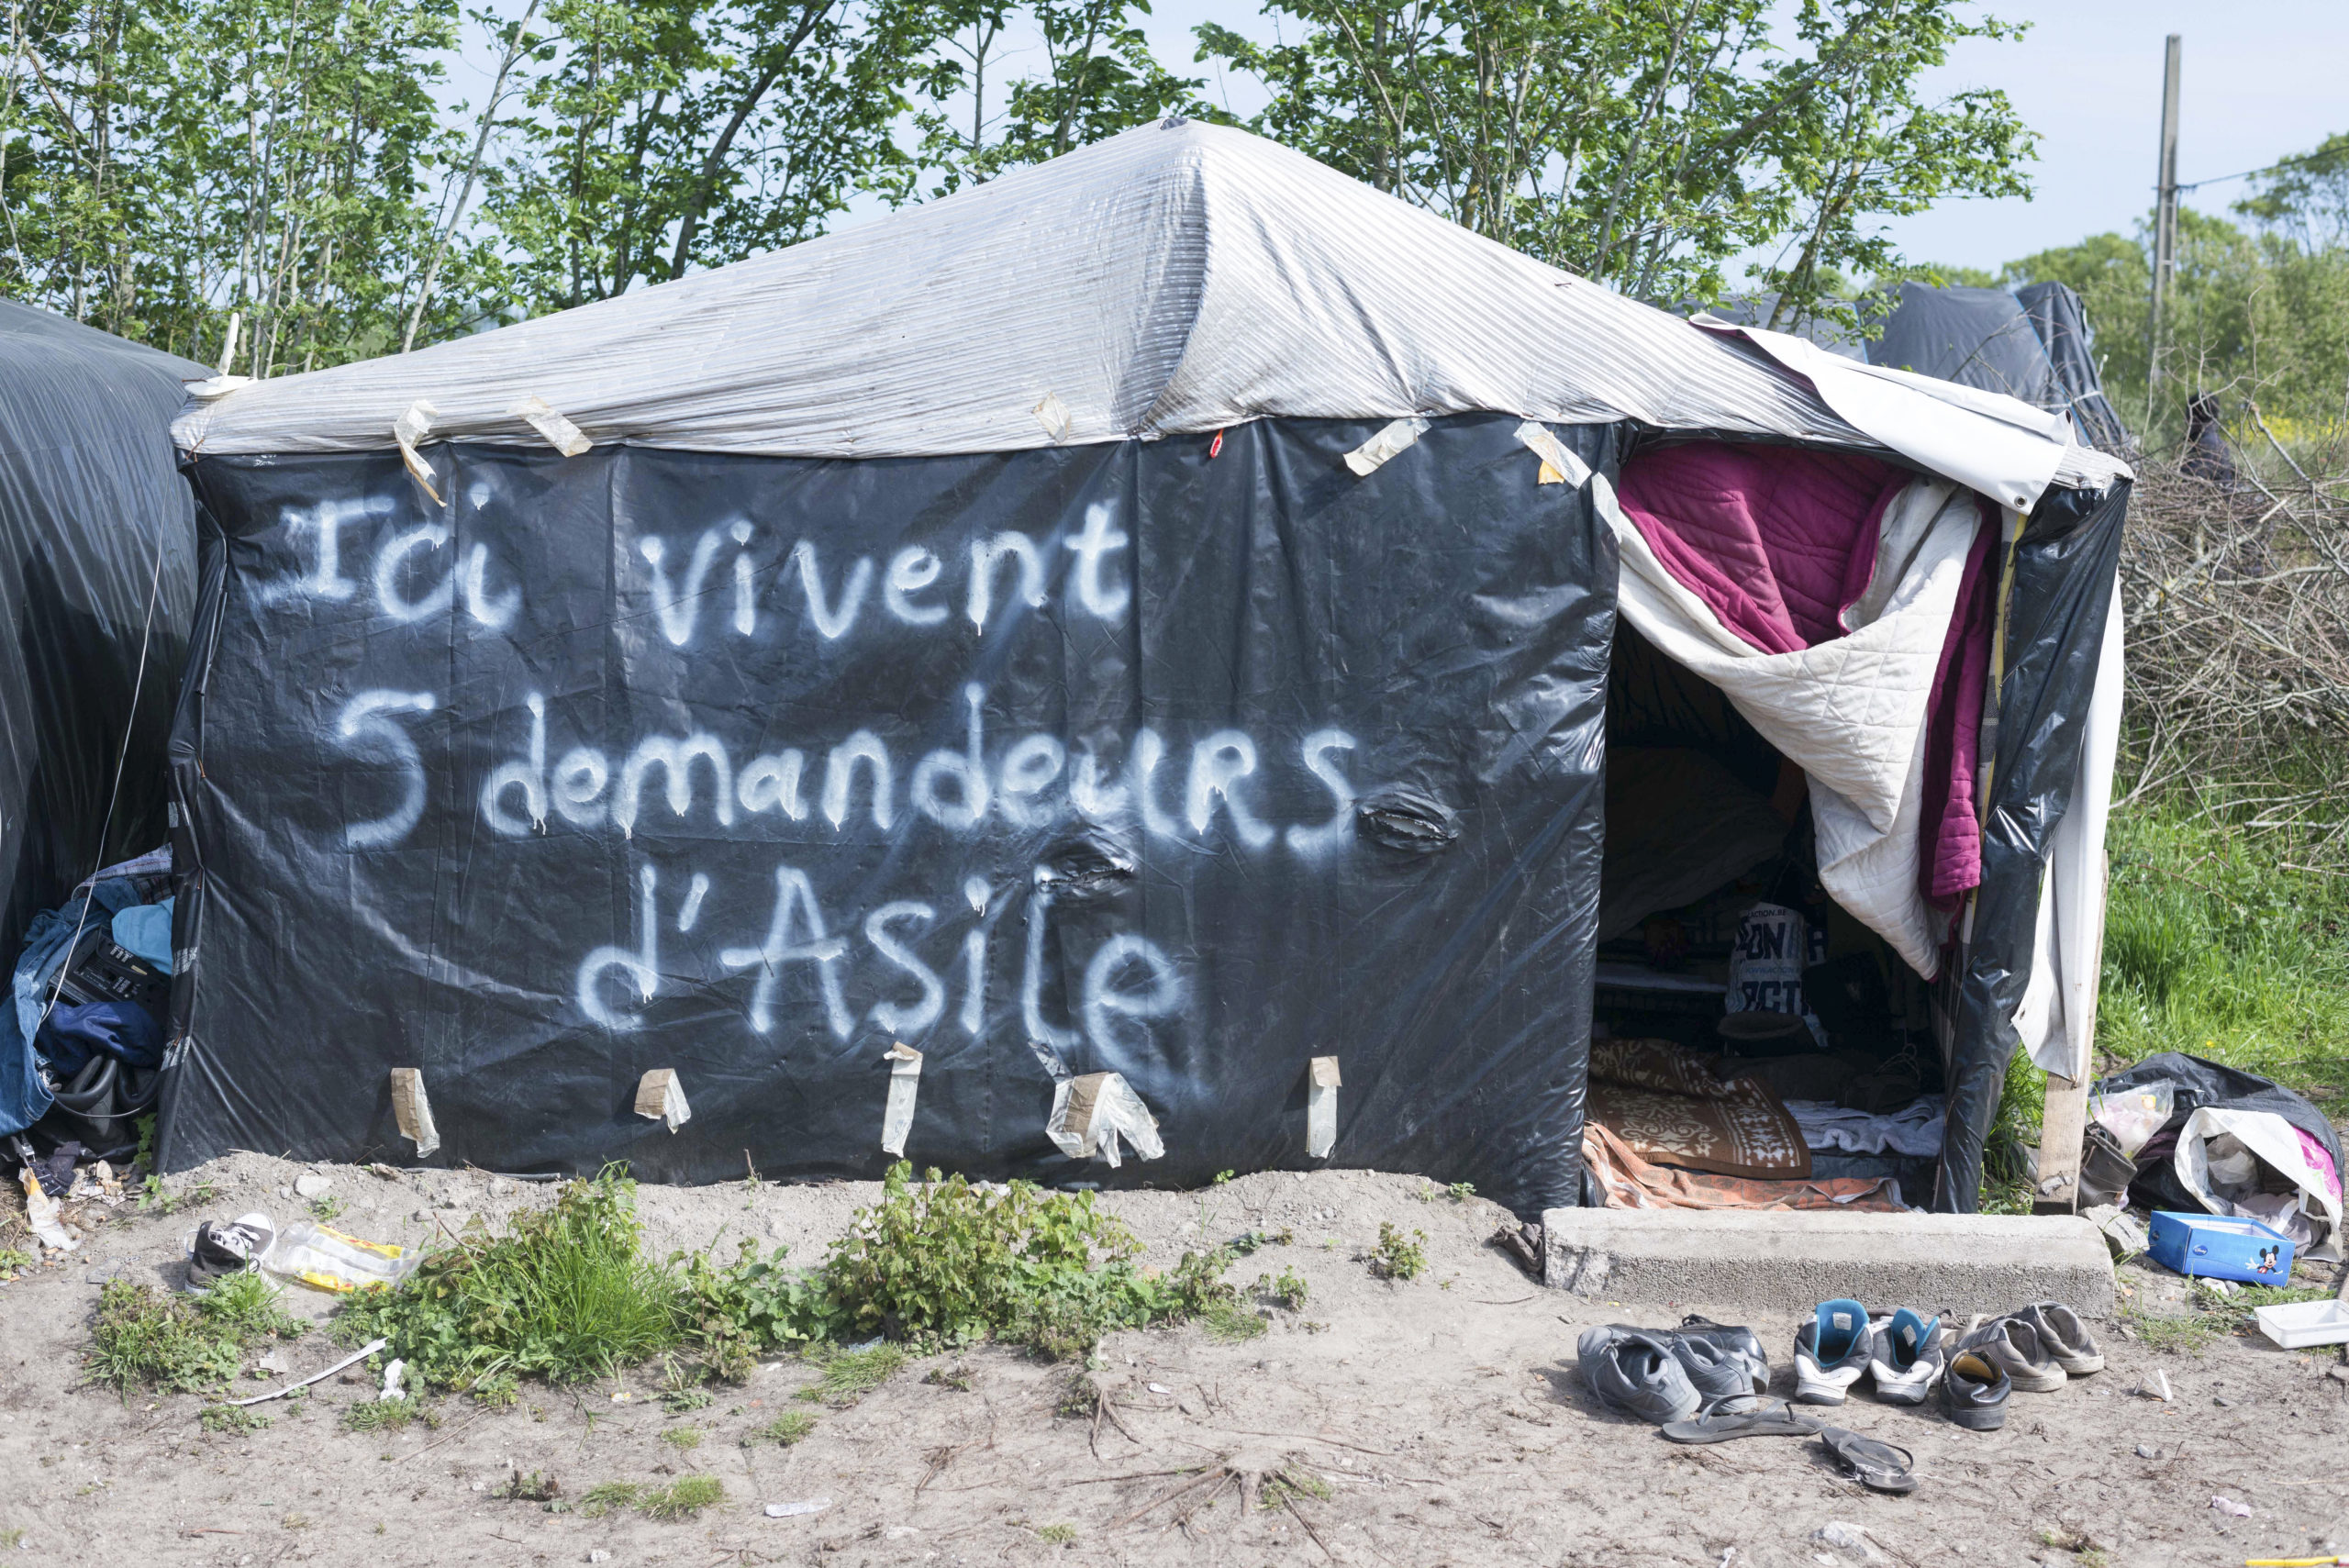 Ici vivent
5 demandeurs
d'Asile